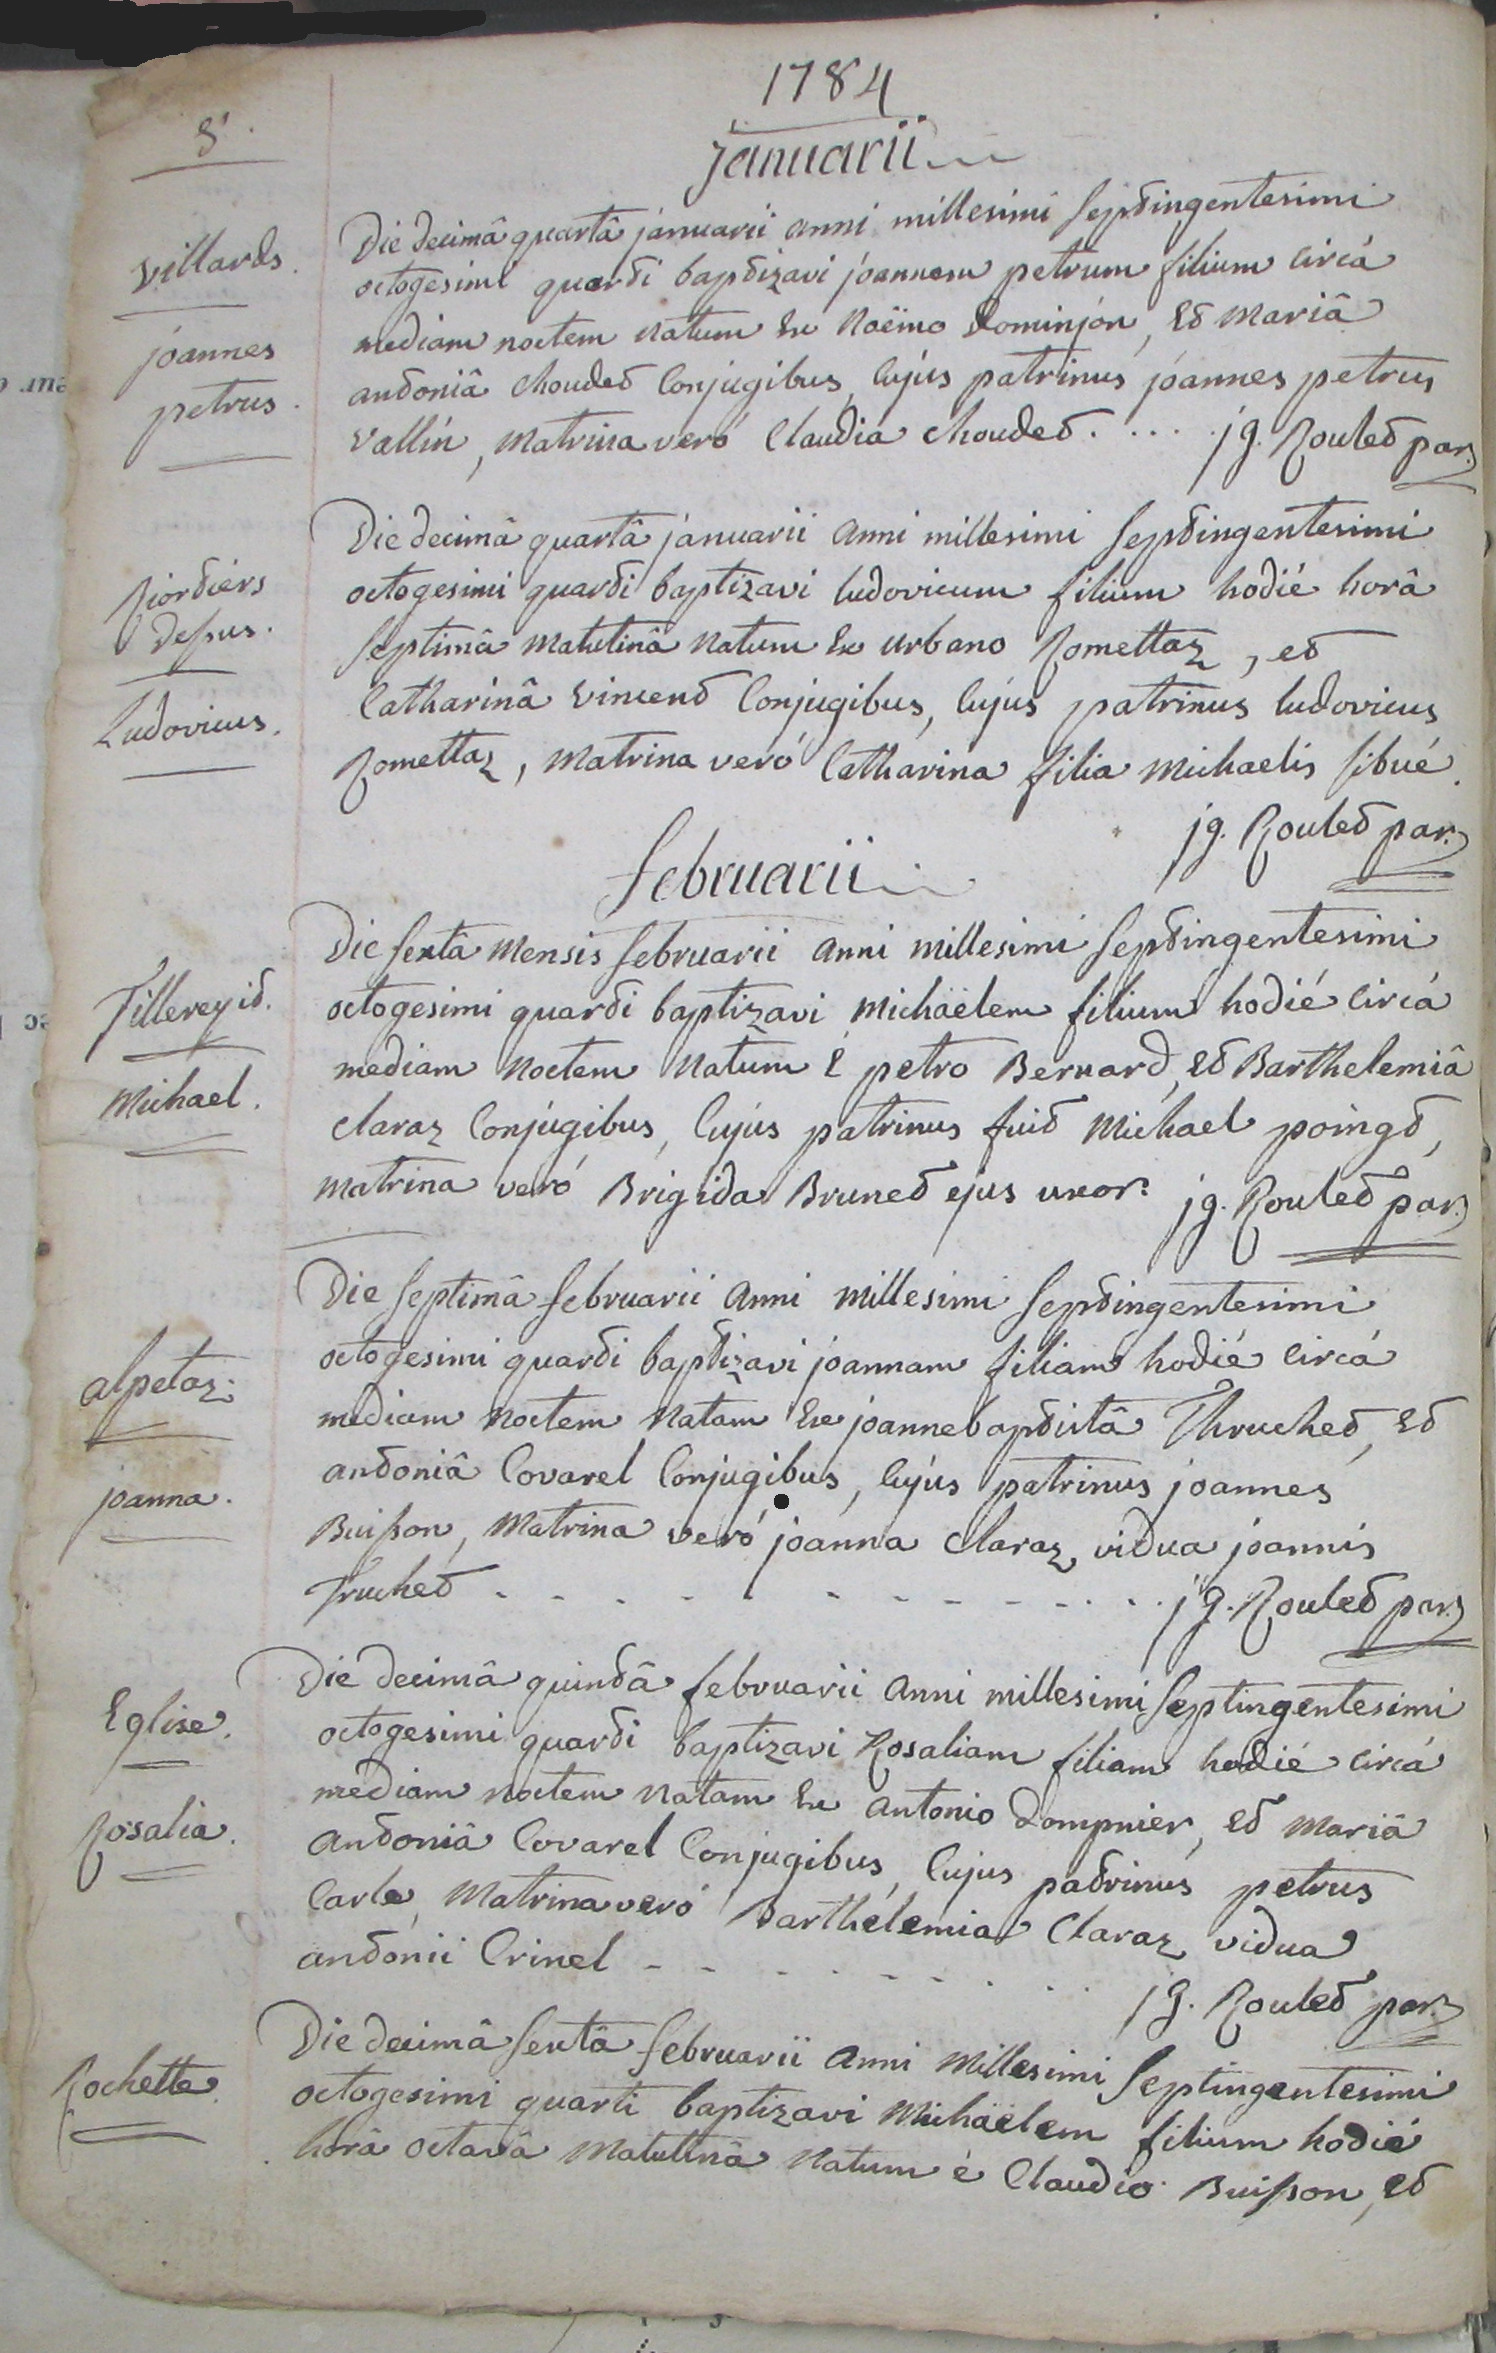 1784
januarii
8.
Villards.
joannes
petrus.
Die decimâ quartâ januarii anni millesimi septingentesimi
octogesimi quarti baptizavi joannem petrum filium circà
mediam noctem natum ex Noëmo Dominjon, et Mariâ
antoniâ Choudet Conjugibus, Cujus patrinus joannes petrus
Vallin, Matrina verò Claudia Choudet. . . . . jg. Roulet par.
Ludovicus.
Die decimâ quartâ januarii anni millesimi septingentesimi
octogesimi quarti baptizavi ludovicum filium hodiè horâ
septimâ matutinâ natum ex urbano Romettaz, et
Catharinâ Vincent Conjugibus, Cujus patrinus ludovicus
Romettaz, Matrina verò Catharina filia Michaelis Sibué.
jg. Roulet par.
februarii
Michael.
Die sextâ Mensis februarii anni millesimi septingentesimi
octogesimi quarti baptizavi Michaëlem filium hodiè circà
mediam noctem natum è petro Bernard, et Barthelemiâ
Claraz Conjugibus, Cujus patrinus fuit Michael poingt,
Matrina verò Brigida Brunet ejus uxor. jg. Roulet par.
alpetaz.
joanna.
Die septimâ februarii anni millesimi septingentesimi
octogesimi quarti baptizavi joannam filiam hodiè circà
mediam noctem natam ex joannebaptistâ Thruchet, et
antoniâ Covarel Conjugibus, Cujus patrinus joannes
Buisson, Matrina verò joanna Claraz vidua joannis
Truchet - - - - - - - - - - . . . jg. Roulet par.
Eglise.
Rosalia.
Die decimâ quintâ februarii anni millesimi septingentesimi
octogesimi quarti baptizavi Rosaliam filiam hodiè circà
mediam noctem natam ex antonio Dompnier, et Mariâ
antoniâ Covarel Conjugibus, Cujus patrinus petrus
Carle, Matrina verò Barthélemia Claraz vidua
antonii Crinel - - - - - - - . . .
jg. Roulet par.
Rochette.
Die decimâ sextâ februarii anni Millesimi septingentesimi
octogesimi quarti baptizavi Michaëlem filium hodiè
horâ octavâ Matutinâ natum è Claudio Buisson, et